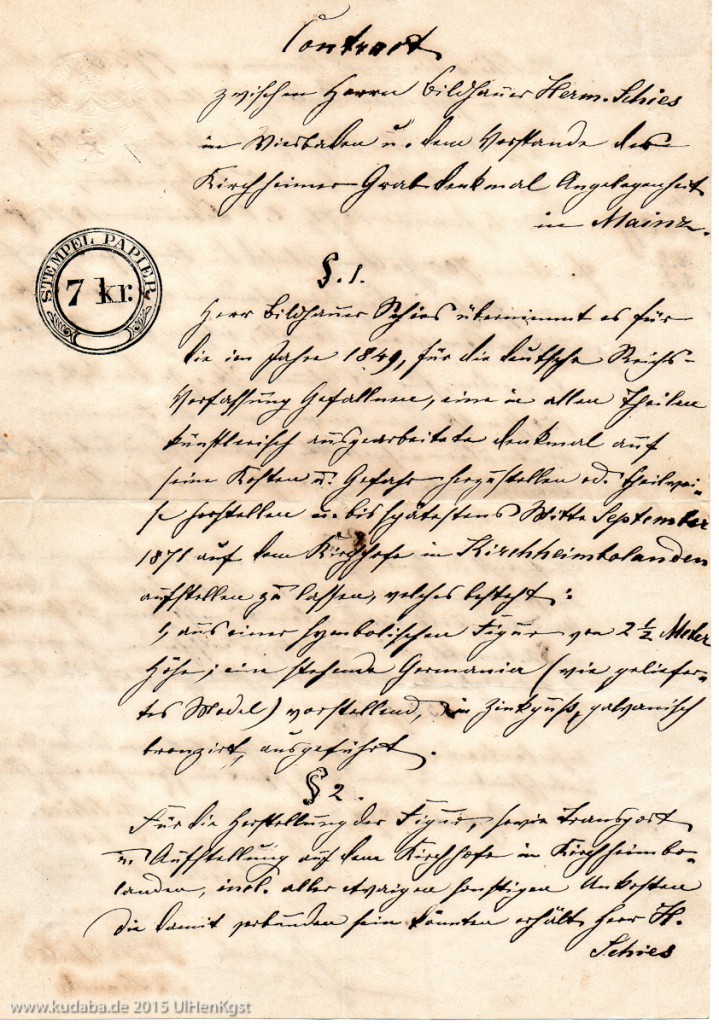 Contract
zwischen Herrn Bildhauer Herm. Schies
in Wiesbaden u. dem Vorstande der
Kirchheimer Grabdenkmal Angelegenheit
in Mainz.
STEMPEL PAPIER
7 kr.
§. 1.
Herr Bildhauer Schies übernimmt es für
die im Jahre 1849, für die deutsche Reichs-
Verfassung Gefallenen, eine in allen Theilen
künstlerisch ausgearbeitete denkmal auf
seine Kosten u. Gefahr herzustellen od. theilwei-
se herstellen u. bis spätestens Mitte September
1871 auf dem Kirchhofe in Kirchheimbolanden
aufstellen zu lassen, welches besteht:
1, aus einer symbolischen Figur von 2 ½ Meter
Höhe; eine stehende Germania (wie geliefer-
tes Model) vorstellend, in Zinkguß, galvanisch
bronzirt, ausgeführt.
§ 2.
Für die Herstellung der Figur, sowie Transport
u. Aufstellung auf dem Kirchhofe in Kirchheimbo-
landen, incl. aller etwaigen sonstigen Unkosten
die damit verbunden sein könnten erhält Herr H.
Schies
www.kudaba.de 2015 UlHenKgst